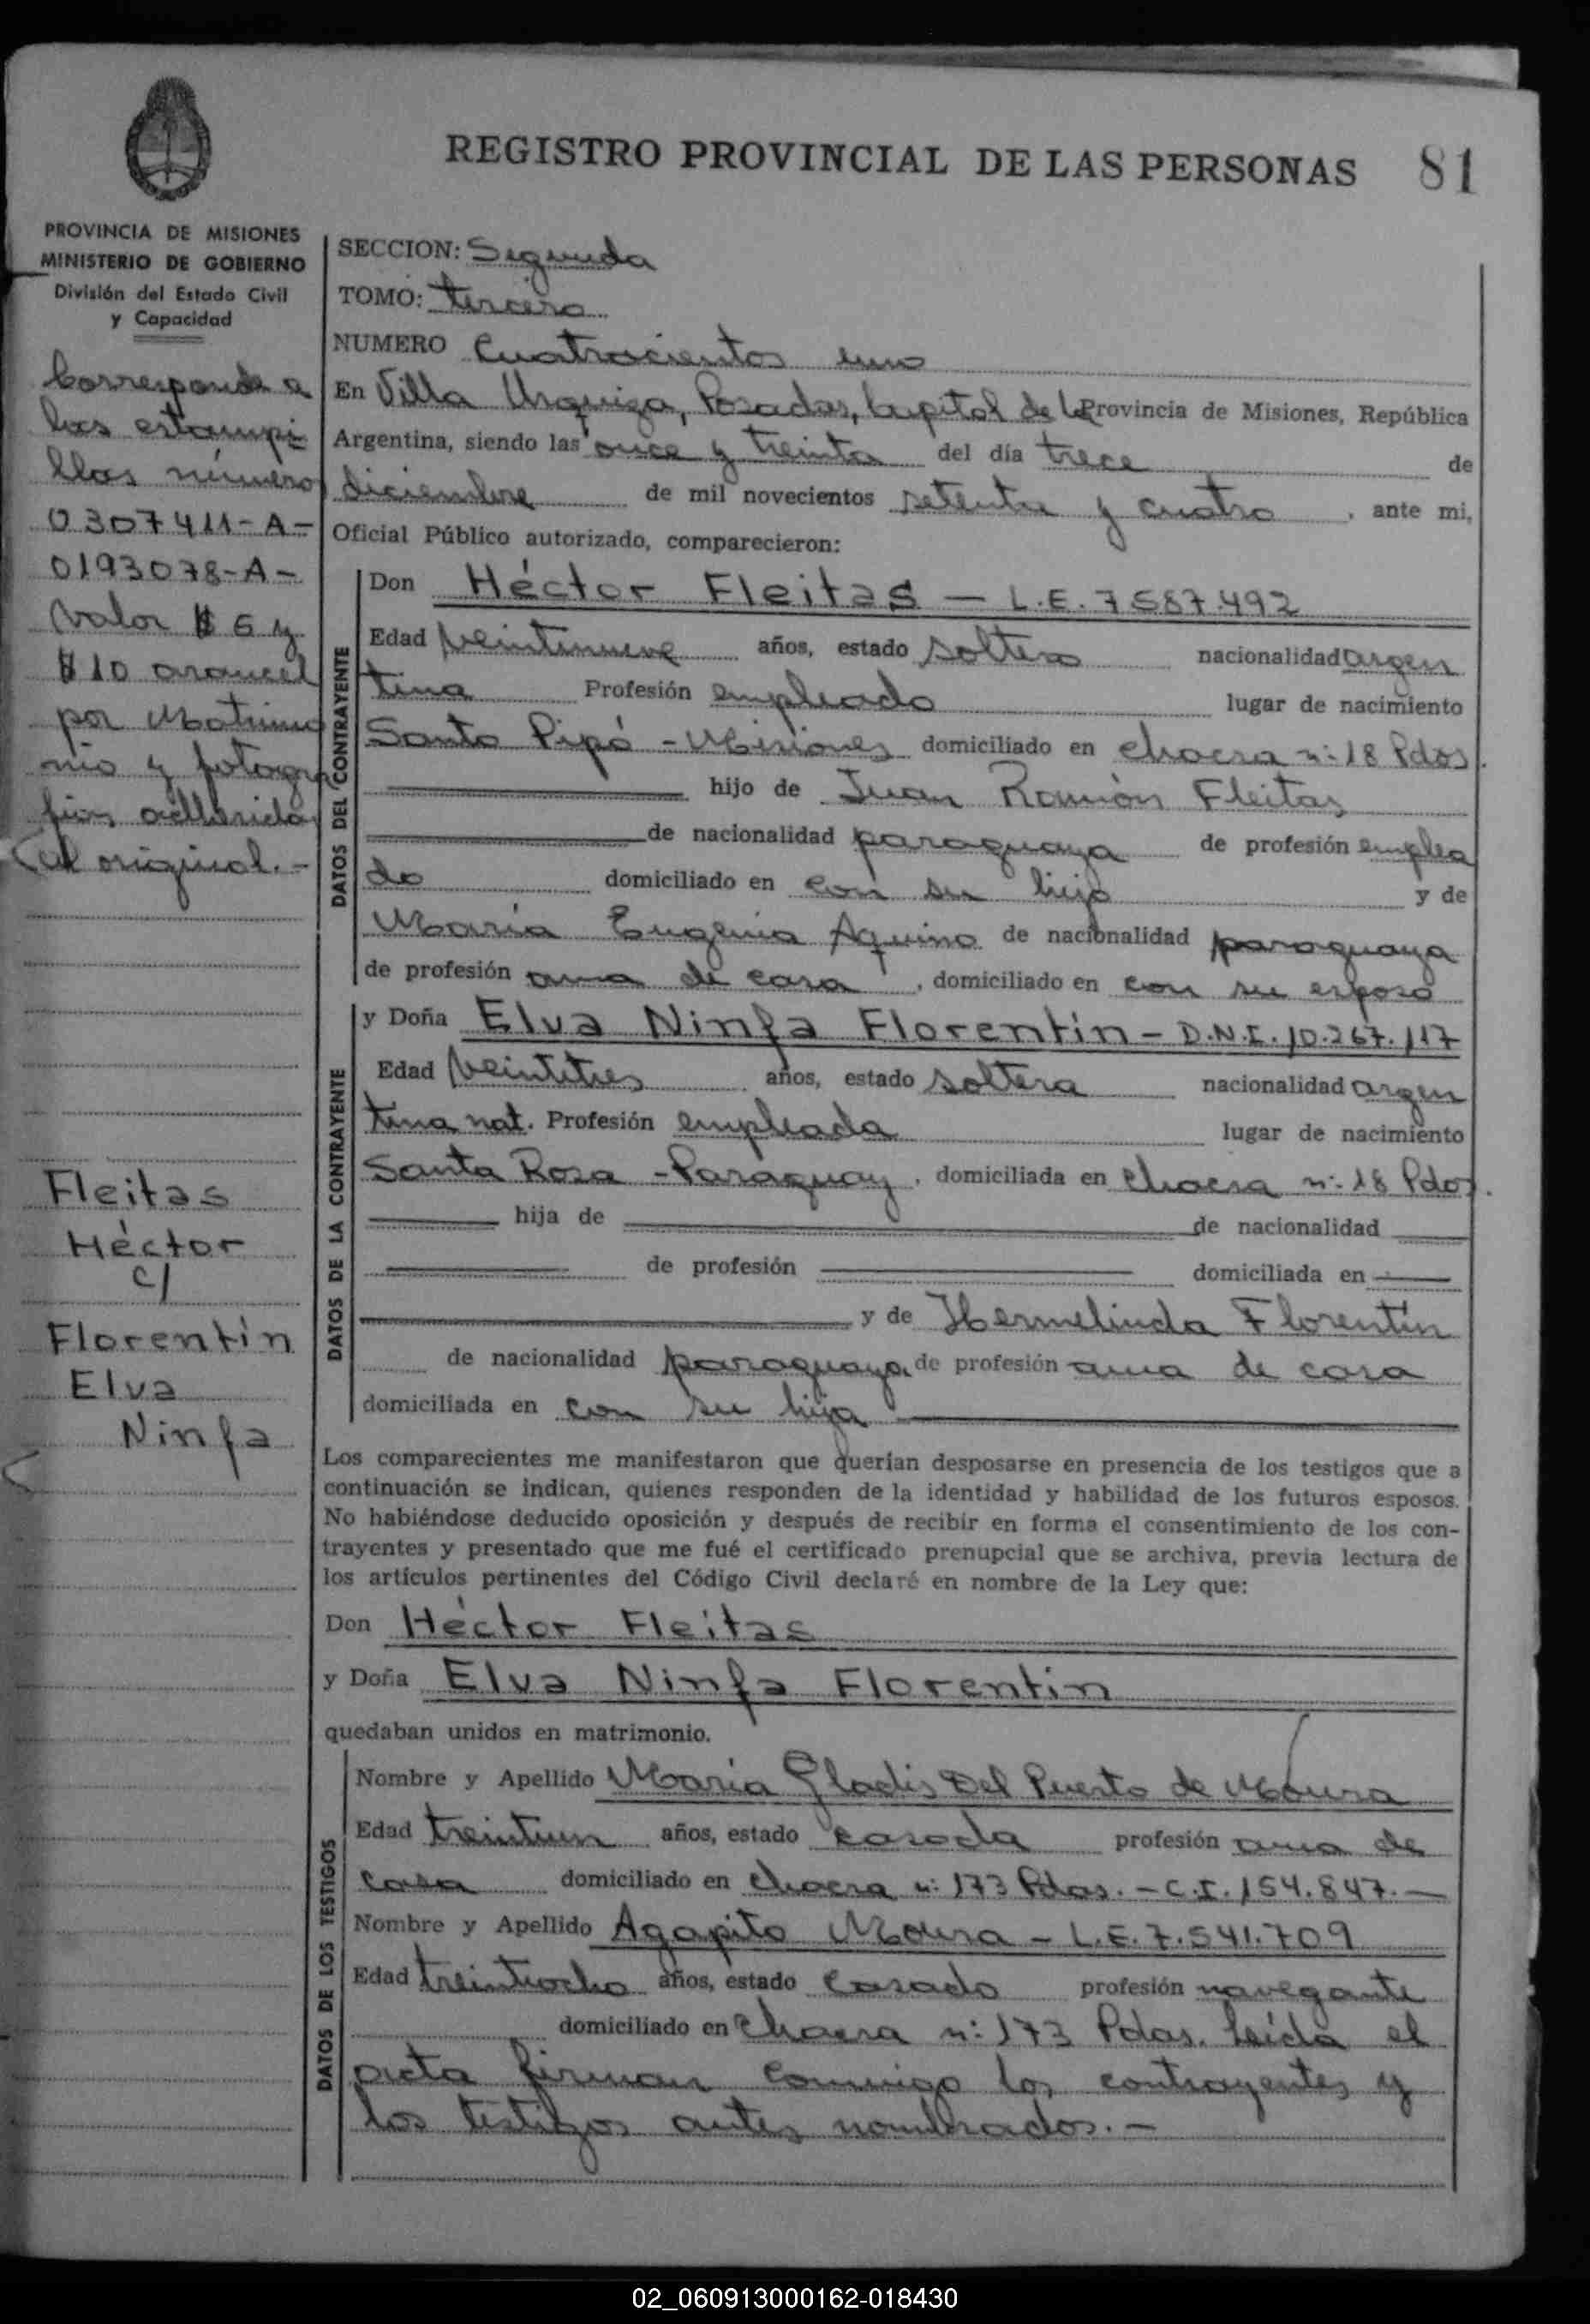 REGISTRO PROVINCIAL DE LAS PERSONAS 81
PROVINCIA DE MISIONES
MINISTERIO DE GOBIERNO
División del Estado Civil
y Capacidad
Corresponde a
las estampi
llas número
0307411-A-
0193078-A-
valor $ 6 y
$ 10 arancel
por Matrimo
nio y fotogra
fías adherida
al original.-
Fleitas
Héctor
c/
Florentín
Elva
Ninfa
SECCION: Segunda
TOMO: tercero
NUMERO Cuatrocientos uno
En Villa Urquiza, Posadas, Capital de la Provincia de Misiones, República
Argentina, siendo las once y treinta del día trece de
diciembre de mil novecientos setenta y cuatro, ante mi,
Oficial Público autorizado, comparecieron:
DATOS DEL CONTRAYENTE
Don Héctor Fleitas - L.E. 7587.492
Edad veintinueve años, estado soltero nacionalidad argen
tina Profesión empleado lugar de nacimiento
Santo Pipó - Misiones domiciliado en chacra n: 18 Pdas.
hijo de Juan Ramón Fleitas
de nacionalidad paraguaya de profesión emplea
do domiciliado en con su hijo y de
María Eugenia Aquino de nacionalidad paraguaya
de profesión ama de casa, domiciliado en con su esposo
DATOS DE LA CONTRAYENTE
y Doña Elva Ninfa Florentín - D.N.I. 10.267.117
Edad veintitres años, estado soltera nacionalidad argen
tina nat. Profesión empleada lugar de nacimiento
Santa Rosa - Paraguay, domiciliada en chacra n: 18 Pdas.
hija de de nacionalidad
de profesión domiciliada en
y de Hermelinda Florentín
de nacionalidad paraguaya de profesión ama de casa
domiciliada en con su hija
Los comparecientes me manifestaron que querían desposarse en presencia de los testigos que a
continuación se indican, quienes responden de la identidad y habilidad de los futuros esposos.
No habiéndose deducido oposición y después de recibir en forma el consentimiento de los con-
trayentes y presentado que me fué el certificado prenupcial que se archiva, previa lectura de
los artículos pertinentes del Código Civil declaré en nombre de la Ley que:
Don Héctor Fleitas
y Doña Elva Ninfa Florentín
quedaban unidos en matrimonio.
DATOS DE LOS TESTIGOS
Nombre y Apellido María Gladis Del Puerto de Moura
Edad treintiun años, estado casada profesión ama de
casa domiciliado en chacra n: 173 Pdas. - C.I. 154.847.-
Nombre y Apellido Agapito Moura - L.E. 7.541.709
Edad treintiocho años, estado casado profesión navegante
domiciliado en chacra n: 173 Pdas. Leída el
acta firman conmigo los contrayentes y
los testigos antes nombrados.-
02_060913000162-018430